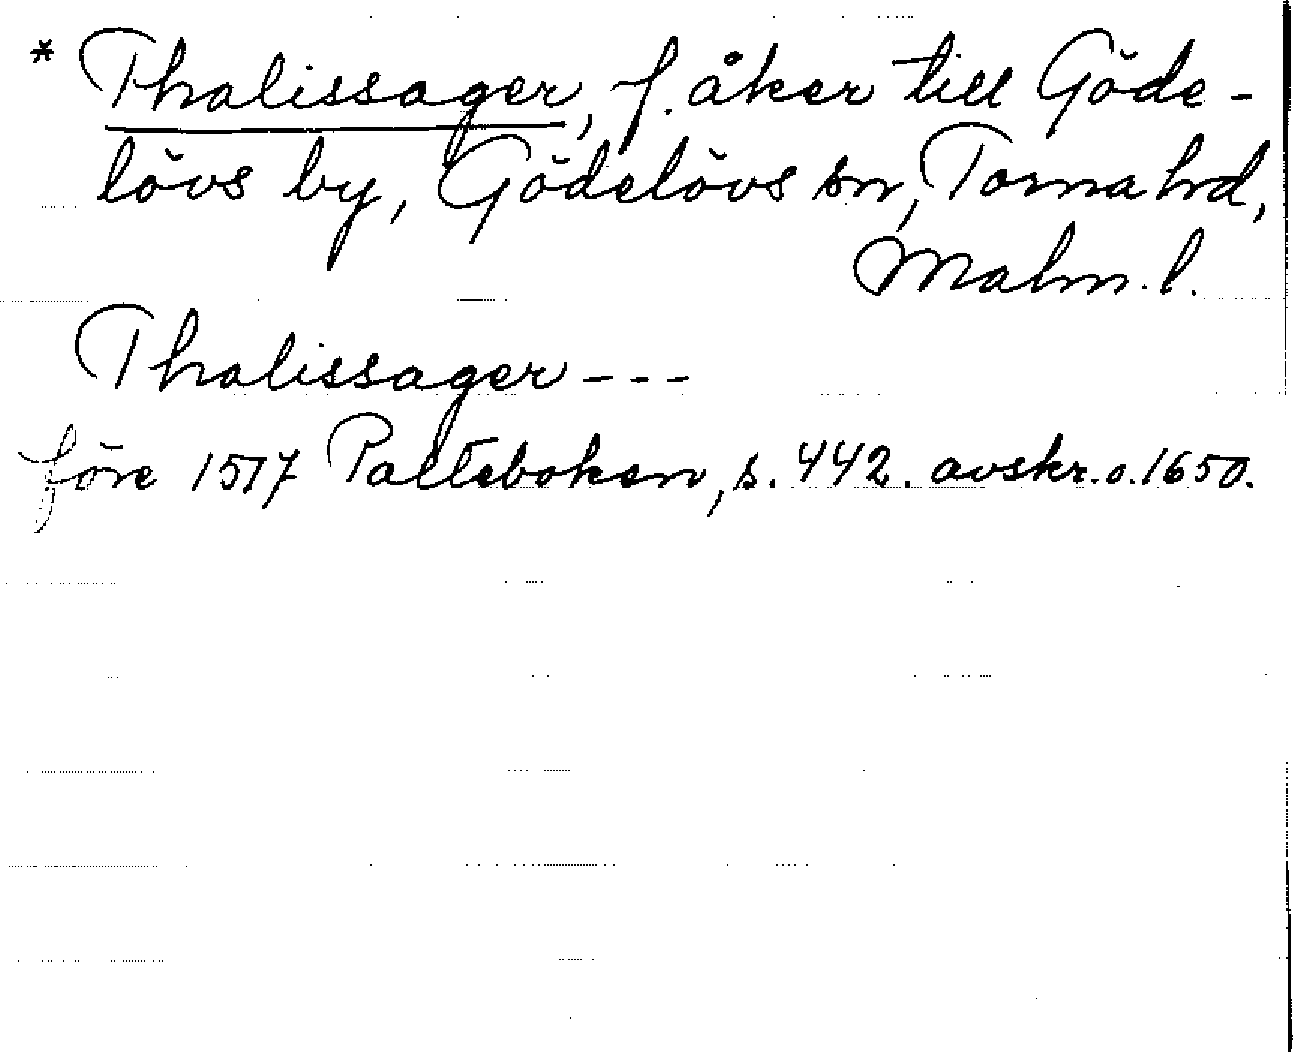 * Thalissager, f. åker till Göde-
lövs by, Gödelövs sn, Torna hd,
Malm. l.
Thalissager ---
före 1517 Palteboken, s. 442. avskr. o. 1650.